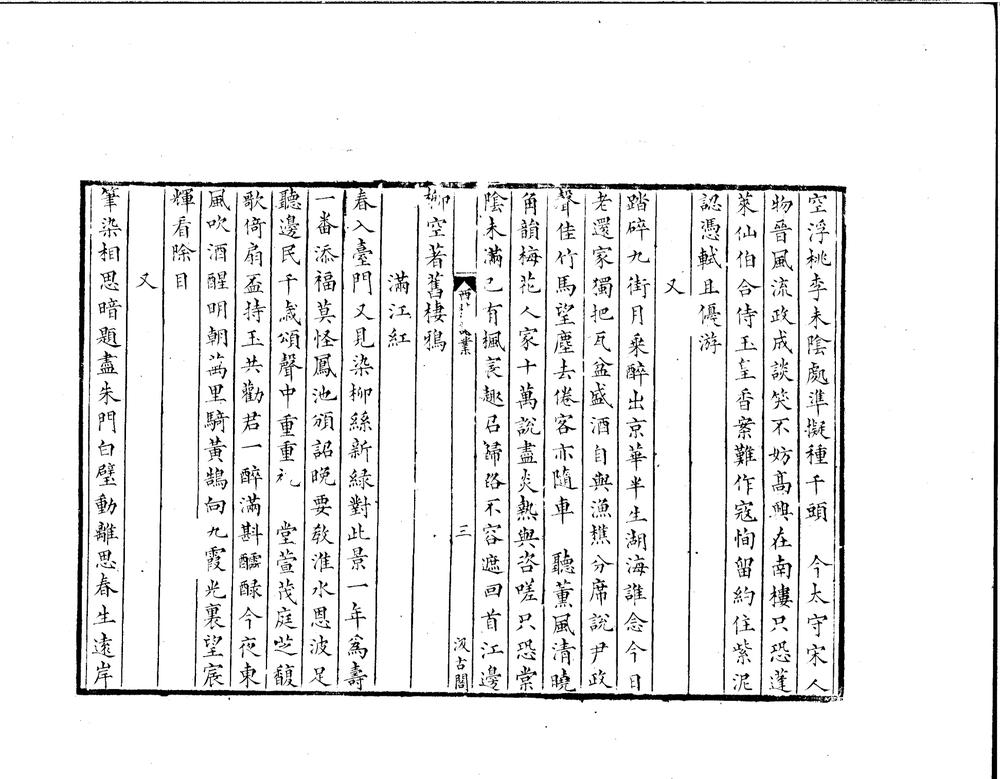 空浮桃李未陰處準擬種千頭　今太守宋人
物晉風流政成談笑不妨高興在南樓只恐蓬
萊仙伯合侍玉皇香案難作寇恂留約住紫泥
認憑軾且優游
又
踏碎九街月乘醉出京華半生湖海誰念今日
老還家獨把瓦盆盛酒自與漁樵分席說尹政
聲佳竹馬望塵去倦客亦隨車　聽薰風清曉
角韻梅花人家十萬說盡炎熱與咨嗟只恐棠
陰未滿已有楓宸趣召歸路不容遮回首江邊
柳空著舊棲鴉
滿江紅
春入臺門又見染柳絲新綠對此景一年為壽
一番添福莫怪鳳池頒詔晚要敎淮水恩波足
聽邊民千歲頌聲中重重祝　堂萱茂庭芝馥
歌倚扇盃持玉共勸君一醉滿斟醽醁今夜東
風吹酒醒明朝萬里騎黃鵠向九霞光裏望宸
輝看除目
又
筆染相思暗題盡朱門白壁動離思春生遠岸
三
汲古閣